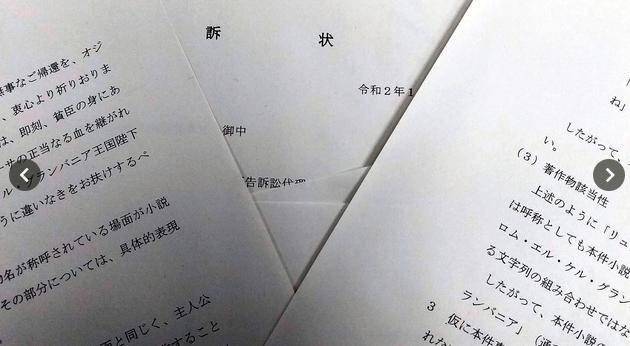 無事なご帰還を、オジ
、衷心より祈りおりま
は、即刻、貧臣の身にあ
ーサの正当なる血を継がれ
ル・グランバニア王国陛下
うに違いなきをお扶けするべ
名が称呼されている場面が小説
その部分については、具体的表現
と同じく、主人公
すること
訴 状
令和2年1
御中
告訴訟代
ね」
したがって、
い。
(3) 著作物該当性
上述のように「リュ
は呼称としても本件小説
ロム・エル・ケル・グラン
る文字列の組み合わせではな
したがって、本件小説の
ランバニア」(通
3 仮に本件
れな